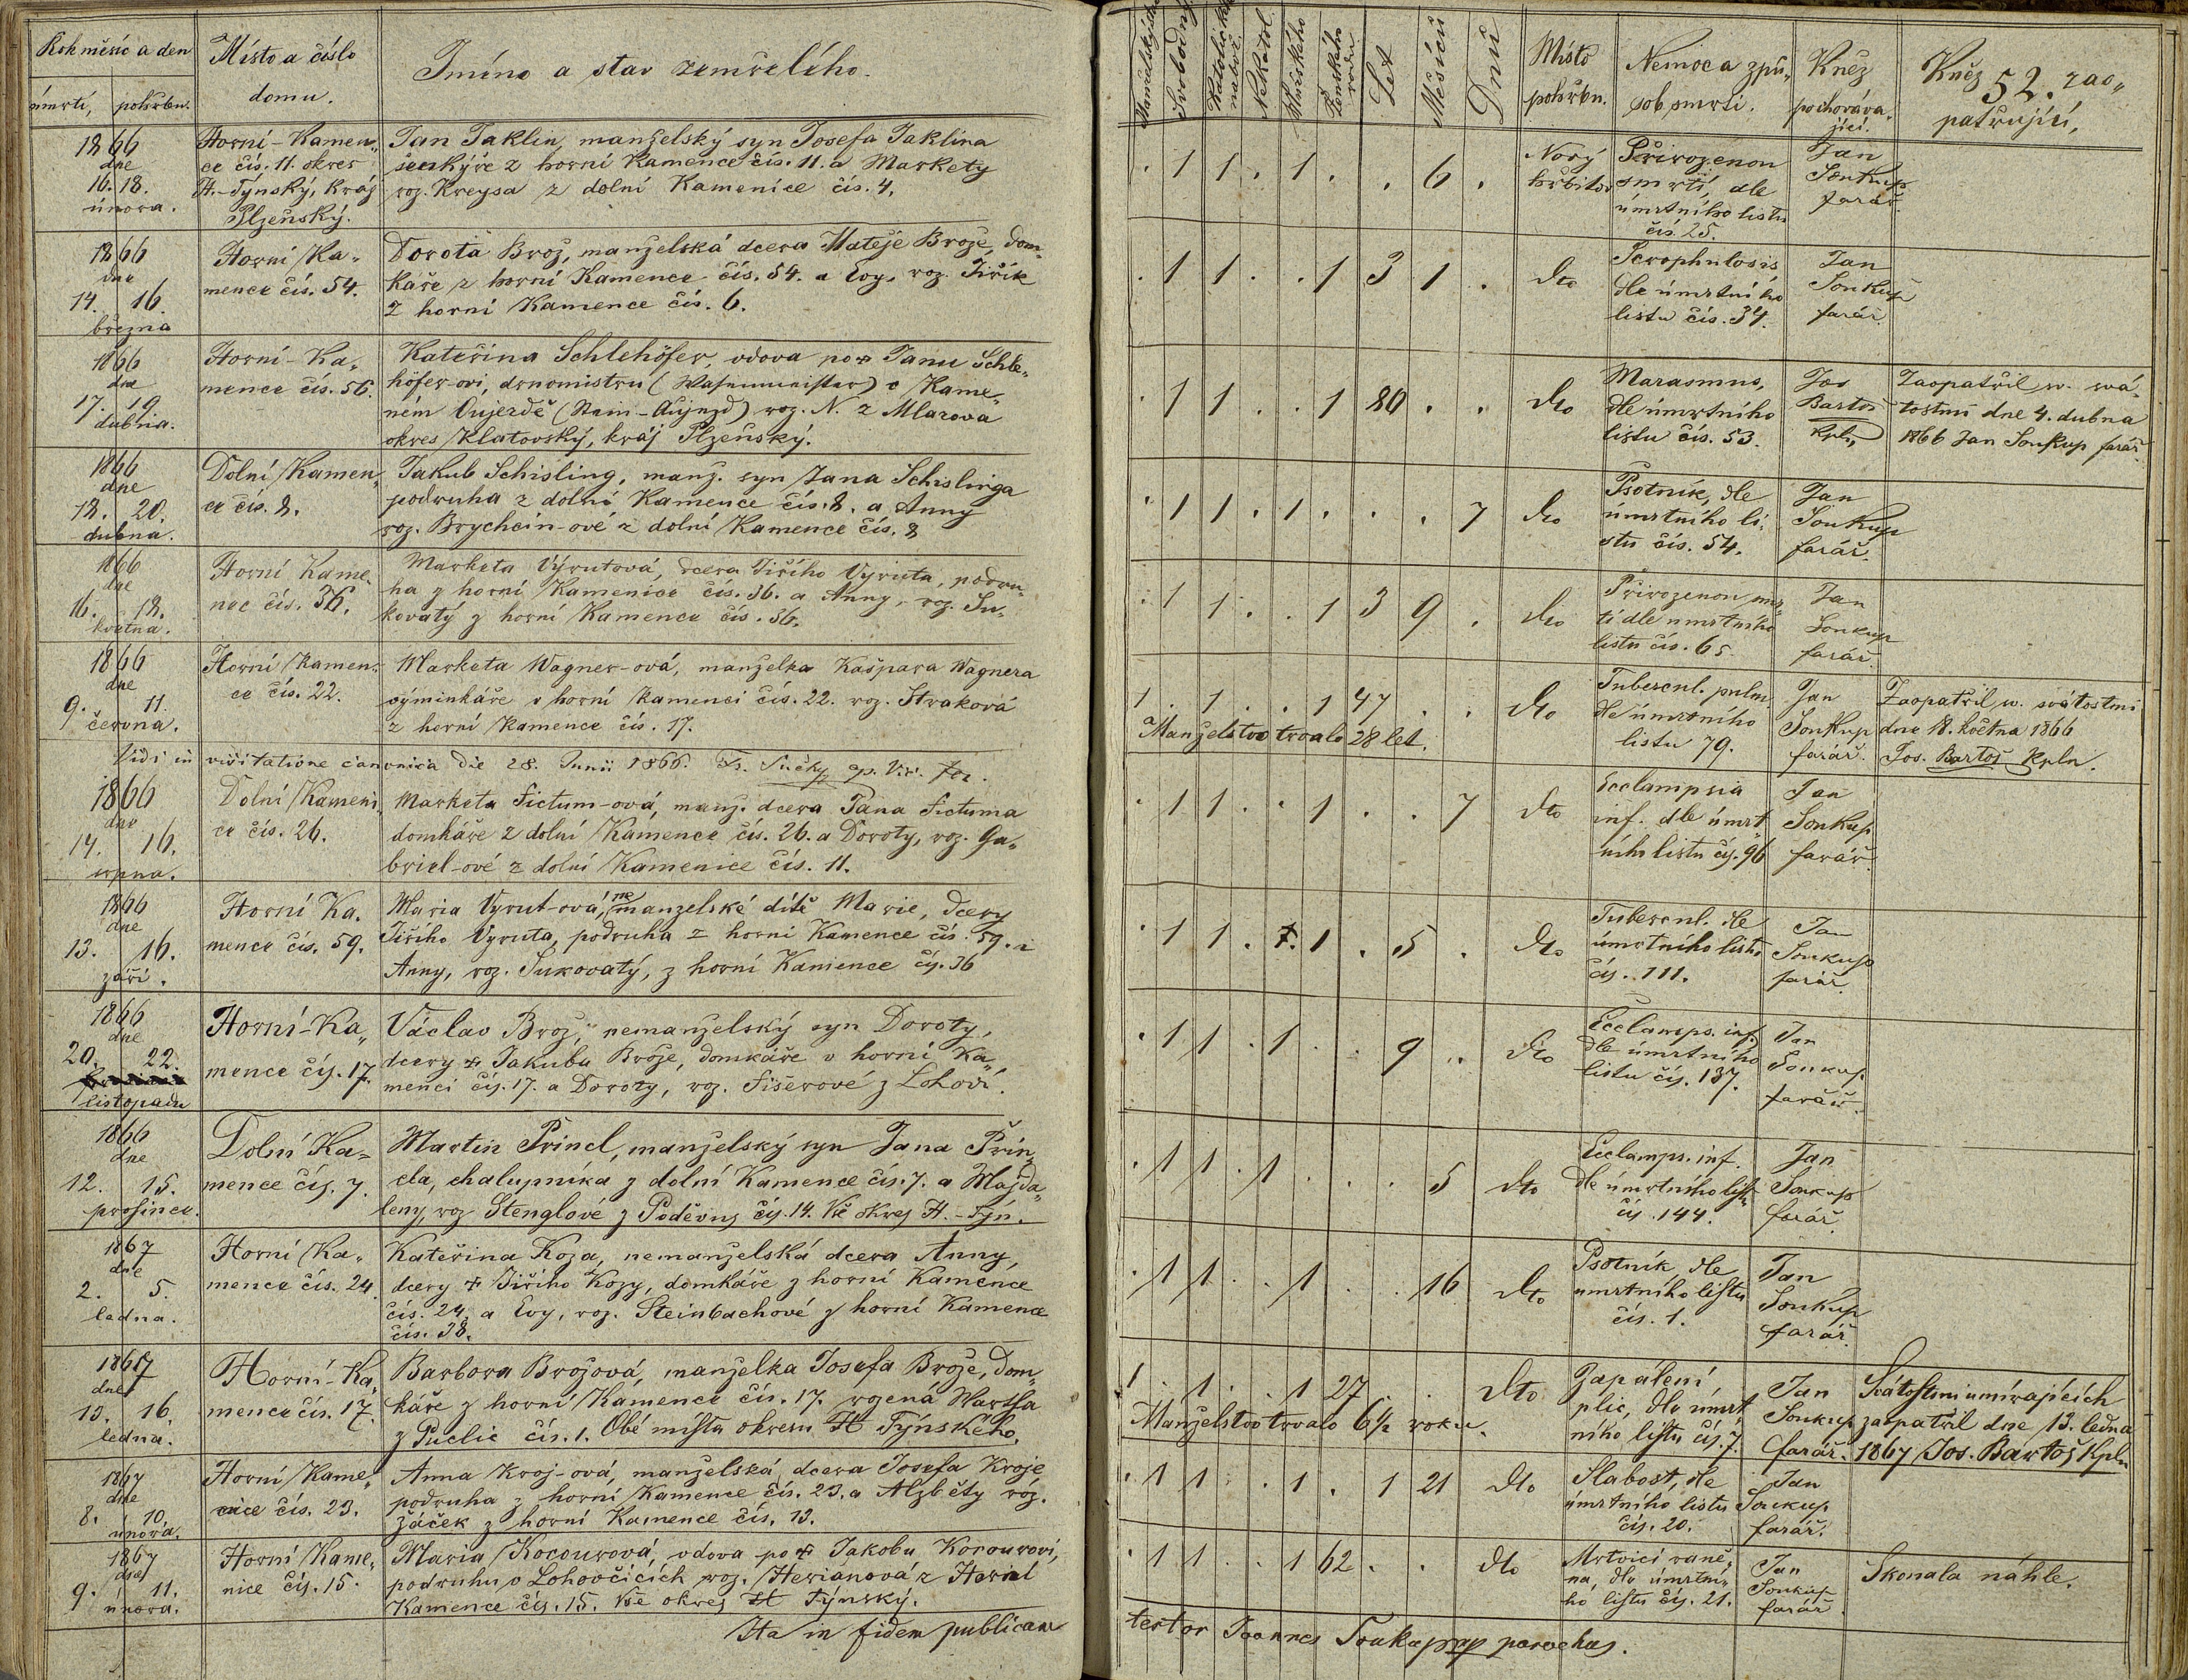 Rok měsíc a den
úmrtí, pohřbu.
Místo a číslo
domu.
Jméno a stav zemřelého.
1866
dne
16. 18.
února.
Horní-Kamen„
ce čís. 11. okres
H.-Týnský, kráj
Plzeňský.
Jan Jaklin, manželský syn Josefa Jaklina
šenkýře z horní Kamence čís. 11. a Markety
roz. Kreysa z dolní Kamenice čís. 4.
1866
dne
14. 16.
března
Horní Ka„
mence čís. 54.
Dorota Brož, manželská dcera Mateje Brože, dom„
káře z horní Kamence čís. 54. a Evy, roz. Jiřík
z horní Kamence čís. 6.
1866
dne
17. 19
dubna.
Horní-Ka„
mence čís. 56.
Kateřina Schlehöfer, vdova po † Janu Schle„
höfer-ovi, drnomistru (Wasenmeister) v Kame„
ném Oujezdě (Stein-Aujezd) roz. N. z Mlazova
okres Klatovský, kráj Plzeňský.
1866
dne
18. 20.
dubna.
Dolní Kamen„
ce čís. 8.
Jakub Schisling, manž. syn Jana Schislinga
podruha z dolní Kamence čís. 8. a Anny
roz. Brychcin-ové z dolní Kamence čís. 8
1866
dne
16. 18.
května.
Horní Kame„
nce čís. 36.
Marketa Výrutová, dcera Jiřího Vyruta, podru„
ha z horní Kamenice čís. 36. a Anny, roz. Su„
kovatý z horní Kamence čís. 36.
1866
dne
9. 11.
června.
Horní Kamen„
ce čís. 22.
Marketa Wagner-ová, manželka Kašpara Wagnera
výminkáře v horní Kamenci čís. 22. roz. Straková
z horní Kamence čís. 17.
Vidi in visitatione canonica die 28. Junii 1866.
1866
dne
14. 16.
srpna.
Dolní Kameni„
ce čís. 26.
Marketa Fictum-ová, manž. dcera Jana Fictuma
domkáře z dolní Kamence čís. 26. a Doroty, roz. Ga„
briel-ové z dolní Kamenice čís. 11.
1866
dne
13. 16.
září.
Horní Ka„
mence čís. 59.
Maria Vyrut-ová, nemanzelské dítě Marie, dcery
Jiřího Vyruta, podruha z horní Kamence čís. 59. a
Anny, roz. Sukovatý, z horní Kamence čís. 36
1866
dne
20. 22.
listopadu
Horní-Ka„
mence čís. 17.
Václav Brož, nemanželský syn Doroty,
dcery † Jakuba Brože, domkáře v horní Ka„
menci čís. 17. a Doroty, roz. Fišerové z Lohoví.
1866
dne
12. 15.
prosince.
Dolní Ka-
mence čís. 7.
Martin Princl, manželský syn Jana Prin„
cla, chalupníka z dolní Kamence čís. 7. a Majda„
leny, roz Stenglové z Poděvous čís. 14. Vše okres H.-Týn.
1867
dne
2. 5.
ledna.
Horní Ka„
mence čís. 24.
Kateřina Koza, nemanželská dcera Anny,
dcery † Jiřího Kozy, domkáře z horní Kamence
čís. 24 a Evy, roz. Steinbachové z horní Kamence
čís. 38.
1867
dne
13. 16.
ledna.
Horní-Ka„
mence čís. 17.
Barbora Brožová, manželka Josefa Brože, dom„
káře z horní Kamence čís. 17. rozená Wartha
z Puclic čís. 1. Obě místa okresu H Týnského.
1867
dne
8. 10.
února.
Horní Kame„
nice čís. 23.
Anna Kroj-ová, manželská dcera Josefa Kroje
podruha z horní Kamence čís. 23. a Alžběty roz.
Žáček z horní Kamence čís. 13.
1867
dne
9. 11.
února.
Horní Kame„
nice čís. 15.
Maria Kocourová, vdova po † Jakobu Kocourovi,
podruhu v Lohovčicích roz. Heriánová z Horní
Kamence čís. 15. Vše okres H Týnský.
Ita in fidem publicam
Manželský
Svobodný
Katolické
Nekatol.
Mužského
Ženského
rodu
Let
Měsíců
Dnů
Místo
pohřbu.
Nemoc a způ„
sob smrti.
Kněz
pochováva„
jící.
Kněz zao„
patřující,
52.
. 1 1 . 1 . . 6 .
Nový
hřbitov
Přirozenou
smrtí, dle
úmrtního listu
čís. 25.
Jan
Soukup
farář.
. 1 1 . . 1 3 1 . dto
Scrophulosis
dle úmrtního
listu čís. 34.
Jan
Soukup
farář.
. 1 1 . . 1 80 . . dto
Marasmus,
dle úmrtního
listu čís. 53.
Jos
Bartoš
kpln
Zaopatřil sv. svá„
tostmi dne 4. dubna
1866 Jan Soukup farář.
. 1 1 . 1 . . . 7 dto
Psotník, dle
úmrtního li„
stu čís. 54.
Jan
Soukup
farář.
. 1 1 . . 1 3 9 . dto
Přirozenou smr„
tí dle úmrtního
listu čís. 65.
Jan
Soukup
farář.
1 . 1 . . 1 47 . . dto
Manželstvo trvalo 28 let.
Tubercul. pulm.
dle úmrtního
listu 79.
Jan
Soukup
farář.
Zaopatřil sv. svátostmi
dne 18. května 1866
Jos. Bartoš kpln.
. 1 1 . . 1 . . 7 dto
Ecclampsia
inf. dle úmrt„
ního listu čís. 96
Jan
Soukup
farář.
. 1 1 . . 1 . 5 . dto
Tubercul. dle
úmrtního listu
čís. 111.
Jan
Soukup
farář.
. 1 1 . 1 . . 9 . dto
Ecclamps. inf.
dle úmrtního
listu čís. 137.
Jan
Soukup
farář.
. 1 1 . 1 . . . 5 dto
Ecclamps. inf.
dle úmrtního listu
čís. 144.
Jan
Soukup
farář.
. 1 1 . . 1 . . 16 dto
Psotník dle
úmrtního listu
čís. 1.
Jan
Soukup
farář.
1 . 1 . . 1 27 . . dto
Manželstvo trvalo 6½ roku.
Zapálení
plic, dle úmrt„
ního listu čís. 7.
Jan
Soukup
farář.
Svátostmi umírajících
zaopatřil dne 13. ledna
1867 Jos. Bartoš kpln
. 1 1 . . 1 . 1 21 dto
Slabost, dle
úmrtního listu
čís. 20.
Jan
Soukup
farář.
. 1 1 . . 1 62 . . dto
Mrtvicí raně„
na, dle úmrtní„
ho listu čís. 21.
Jan
Soukup
farář.
Skonala náhle.
testor Joannes Soukup parochus.